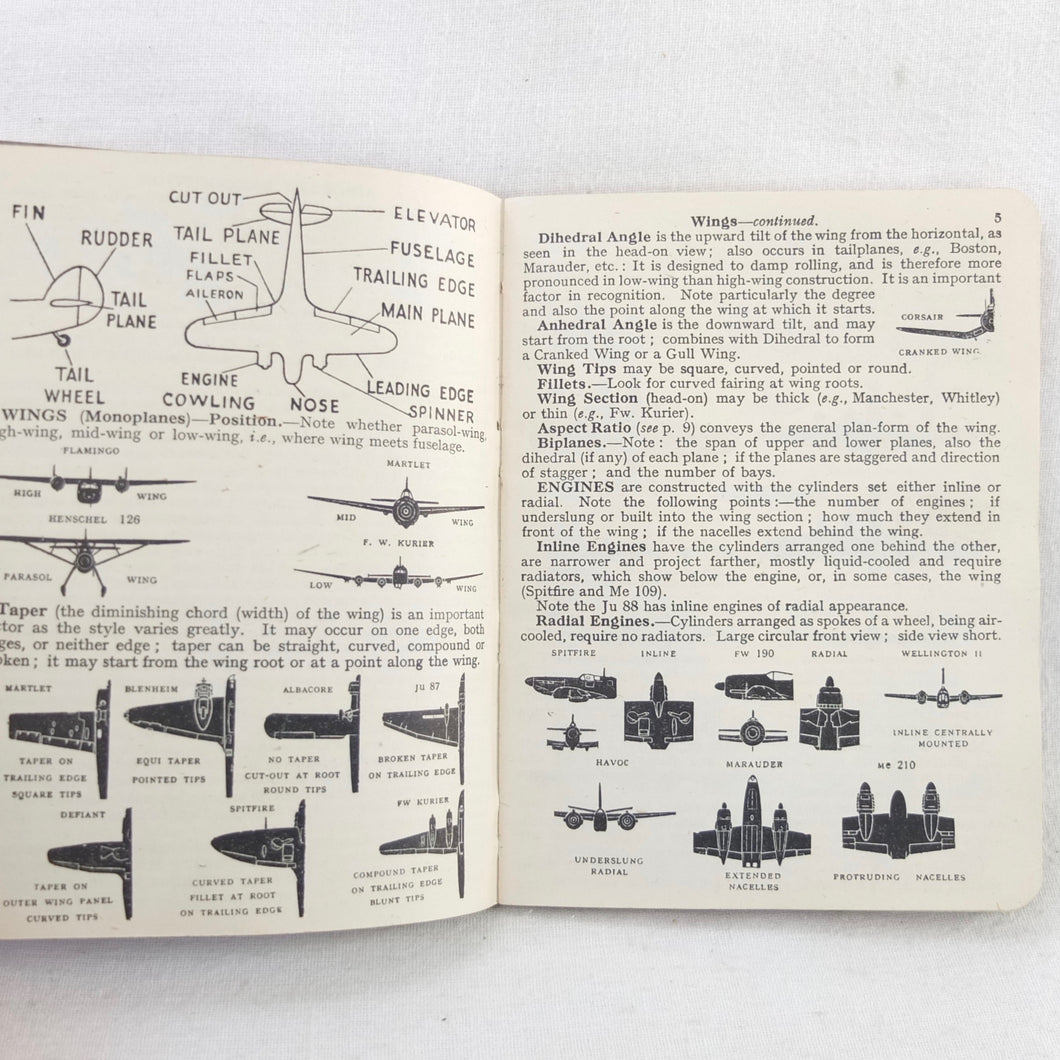 CUT OUT
FIN
ELEVATOR
RUDDER
TAIL PLANE
FUSELAGE
FILLET
FLAPS
TRAILING EDGE
AILERON
TAIL
PLANE
MAIN PLANE
TAIL
WHEEL
ENGINE
COWLING
NOSE
LEADING EDGE
SPINNER
WINGS (Monoplanes)—Position.—Note whether parasol-wing,
gh-wing, mid-wing or low-wing, i.e., where wing meets fuselage.
FLAMINGO
MARTLET
HIGH WING
HENSCHEL 126
MID WING
F. W. KURIER
PARASOL WING
LOW WING
Taper (the diminishing chord (width) of the wing) is an important
tor as the style varies greatly. It may occur on one edge, both
ges, or neither edge; taper can be straight, curved, compound or
oken; it may start from the wing root or at a point along the wing.
MARTLET
BLENHEIM
ALBACORE
Ju 87
TAPER ON
TRAILING EDGE
SQUARE TIPS
EQUI TAPER
POINTED TIPS
NO TAPER
CUT-OUT AT ROOT
ROUND TIPS
BROKEN TAPER
ON TRAILING EDGE
DEFIANT
SPITFIRE
FW KURIER
TAPER ON
OUTER WING PANEL
CURVED TIPS
CURVED TAPER
FILLET AT ROOT
ON TRAILING EDGE
COMPOUND TAPER
ON TRAILING EDGE
BLUNT TIPS
5
Wings—continued.
Dihedral Angle is the upward tilt of the wing from the horizontal, as
seen in the head-on view; also occurs in tailplanes, e.g., Boston,
Marauder, etc.: It is designed to damp rolling, and is therefore more
pronounced in low-wing than high-wing construction. It is an important
factor in recognition. Note particularly the degree
and also the point along the wing at which it starts.
Anhedral Angle is the downward tilt, and may
start from the root; combines with Dihedral to form
a Cranked Wing or a Gull Wing.
CORSAIR
CRANKED WING
Wing Tips may be square, curved, pointed or round.
Fillets.—Look for curved fairing at wing roots.
Wing Section (head-on) may be thick (e.g., Manchester, Whitley)
or thin (e.g., Fw. Kurier).
Aspect Ratio (see p. 9) conveys the general plan-form of the wing.
Biplanes.—Note: the span of upper and lower planes, also the
dihedral (if any) of each plane; if the planes are staggered and direction
of stagger; and the number of bays.
ENGINES are constructed with the cylinders set either inline or
radial. Note the following points:—the number of engines; if
underslung or built into the wing section; how much they extend in
front of the wing; if the nacelles extend behind the wing.
Inline Engines have the cylinders arranged one behind the other,
are narrower and project farther, mostly liquid-cooled and require
radiators, which show below the engine, or, in some cases, the wing
(Spitfire and Me 109).
Note the Ju 88 has inline engines of radial appearance.
Radial Engines.—Cylinders arranged as spokes of a wheel, being air-
cooled, require no radiators. Large circular front view; side view short.
SPITFIRE INLINE FW 190 RADIAL WELLINGTON II
INLINE CENTRALLY
MOUNTED
HAVOC
MARAUDER
Me 210
UNDERSLUNG
RADIAL
EXTENDED
NACELLES
PROTRUDING NACELLES